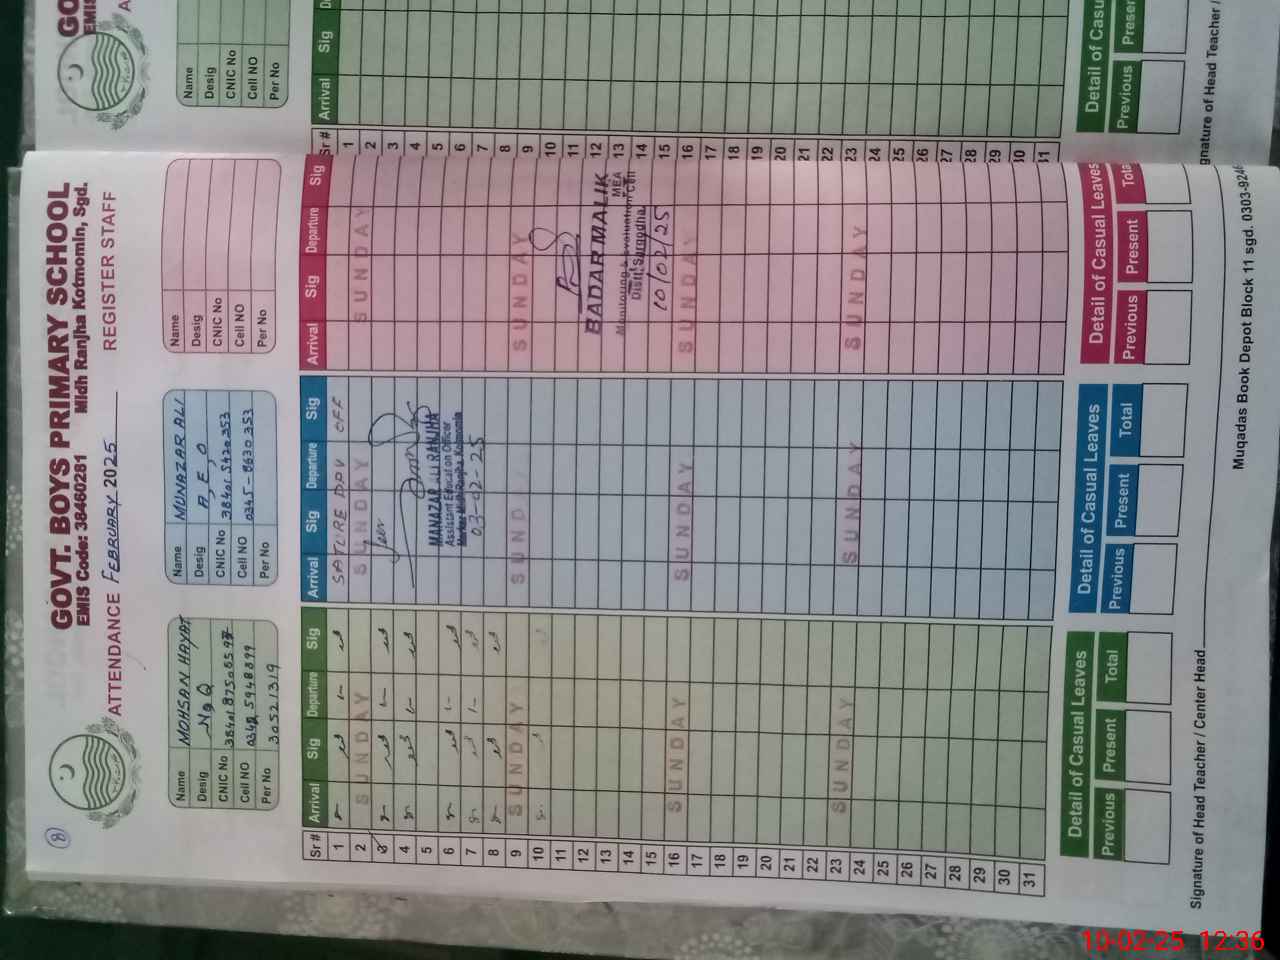 GOVT. BOYS PRIMARY SCHOOL
EMIS Code: 38460281 Midh Ranjha Kotmomin, Sgd.
ATTENDANCE FEBRUARY 2025 REGISTER STAFF
8
Name MOHSAN HAYAT
Desig N a Q
CNIC No
Cell NO 5948899
Per No 30521319
Name MUNAZAR ALI
Desig A, E, O
CNIC No 38401 5420353
Cell NO 0345-8630353
Per No
Name
Desig
CNIC No
Cell NO
Per No
Sr # Arrival Sig Departure Sig Arrival Sig Departure Sig Arrival Sig Departure Sig
1 SATURE DAY OFF
2 SUNDAY SUNDAY SUNDAY
3
4
5
6
7
8
9 SUNDAY SUNDAY SUNDAY
10
11
12
13
14
15
16 SUNDAY SUNDAY SUNDAY
17
18
19
20
21
22
23 SUNDAY SUNDAY SUNDAY
24
25
26
27
28
29
30
31
MANAZAR ALI RANJHA
Assistant Education Officer
Markaz Midh Ranjha, Kotmomin
03-02-25
BADAR MALIK
MEA
Monitoring & Evaluation Cell
Distt. Sargodha
10/02/25
Detail of Casual Leaves Detail of Casual Leaves Detail of Casual Leaves
Previous Present Total Previous Present Total Previous Present Total
Signature of Head Teacher / Center Head
Muqadas Book Depot Block 11 sgd. 0303-924
GO
EMIS
A
Name
Desig
CNIC No
Cell NO
Per No
Sr # Arrival Sig D
1
2
3
4
5
6
7
8
9
10
11
12
13
14
15
16
17
18
19
20
21
22
23
24
25
26
27
28
29
30
31
Detail of Casu
Previous Presen
gnature of Head Teacher /
10-02-25 12:36